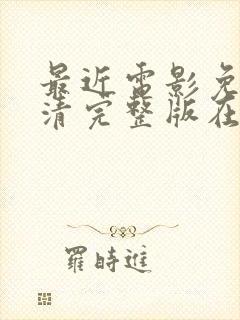 最近电影免
清完整版在
羅時進